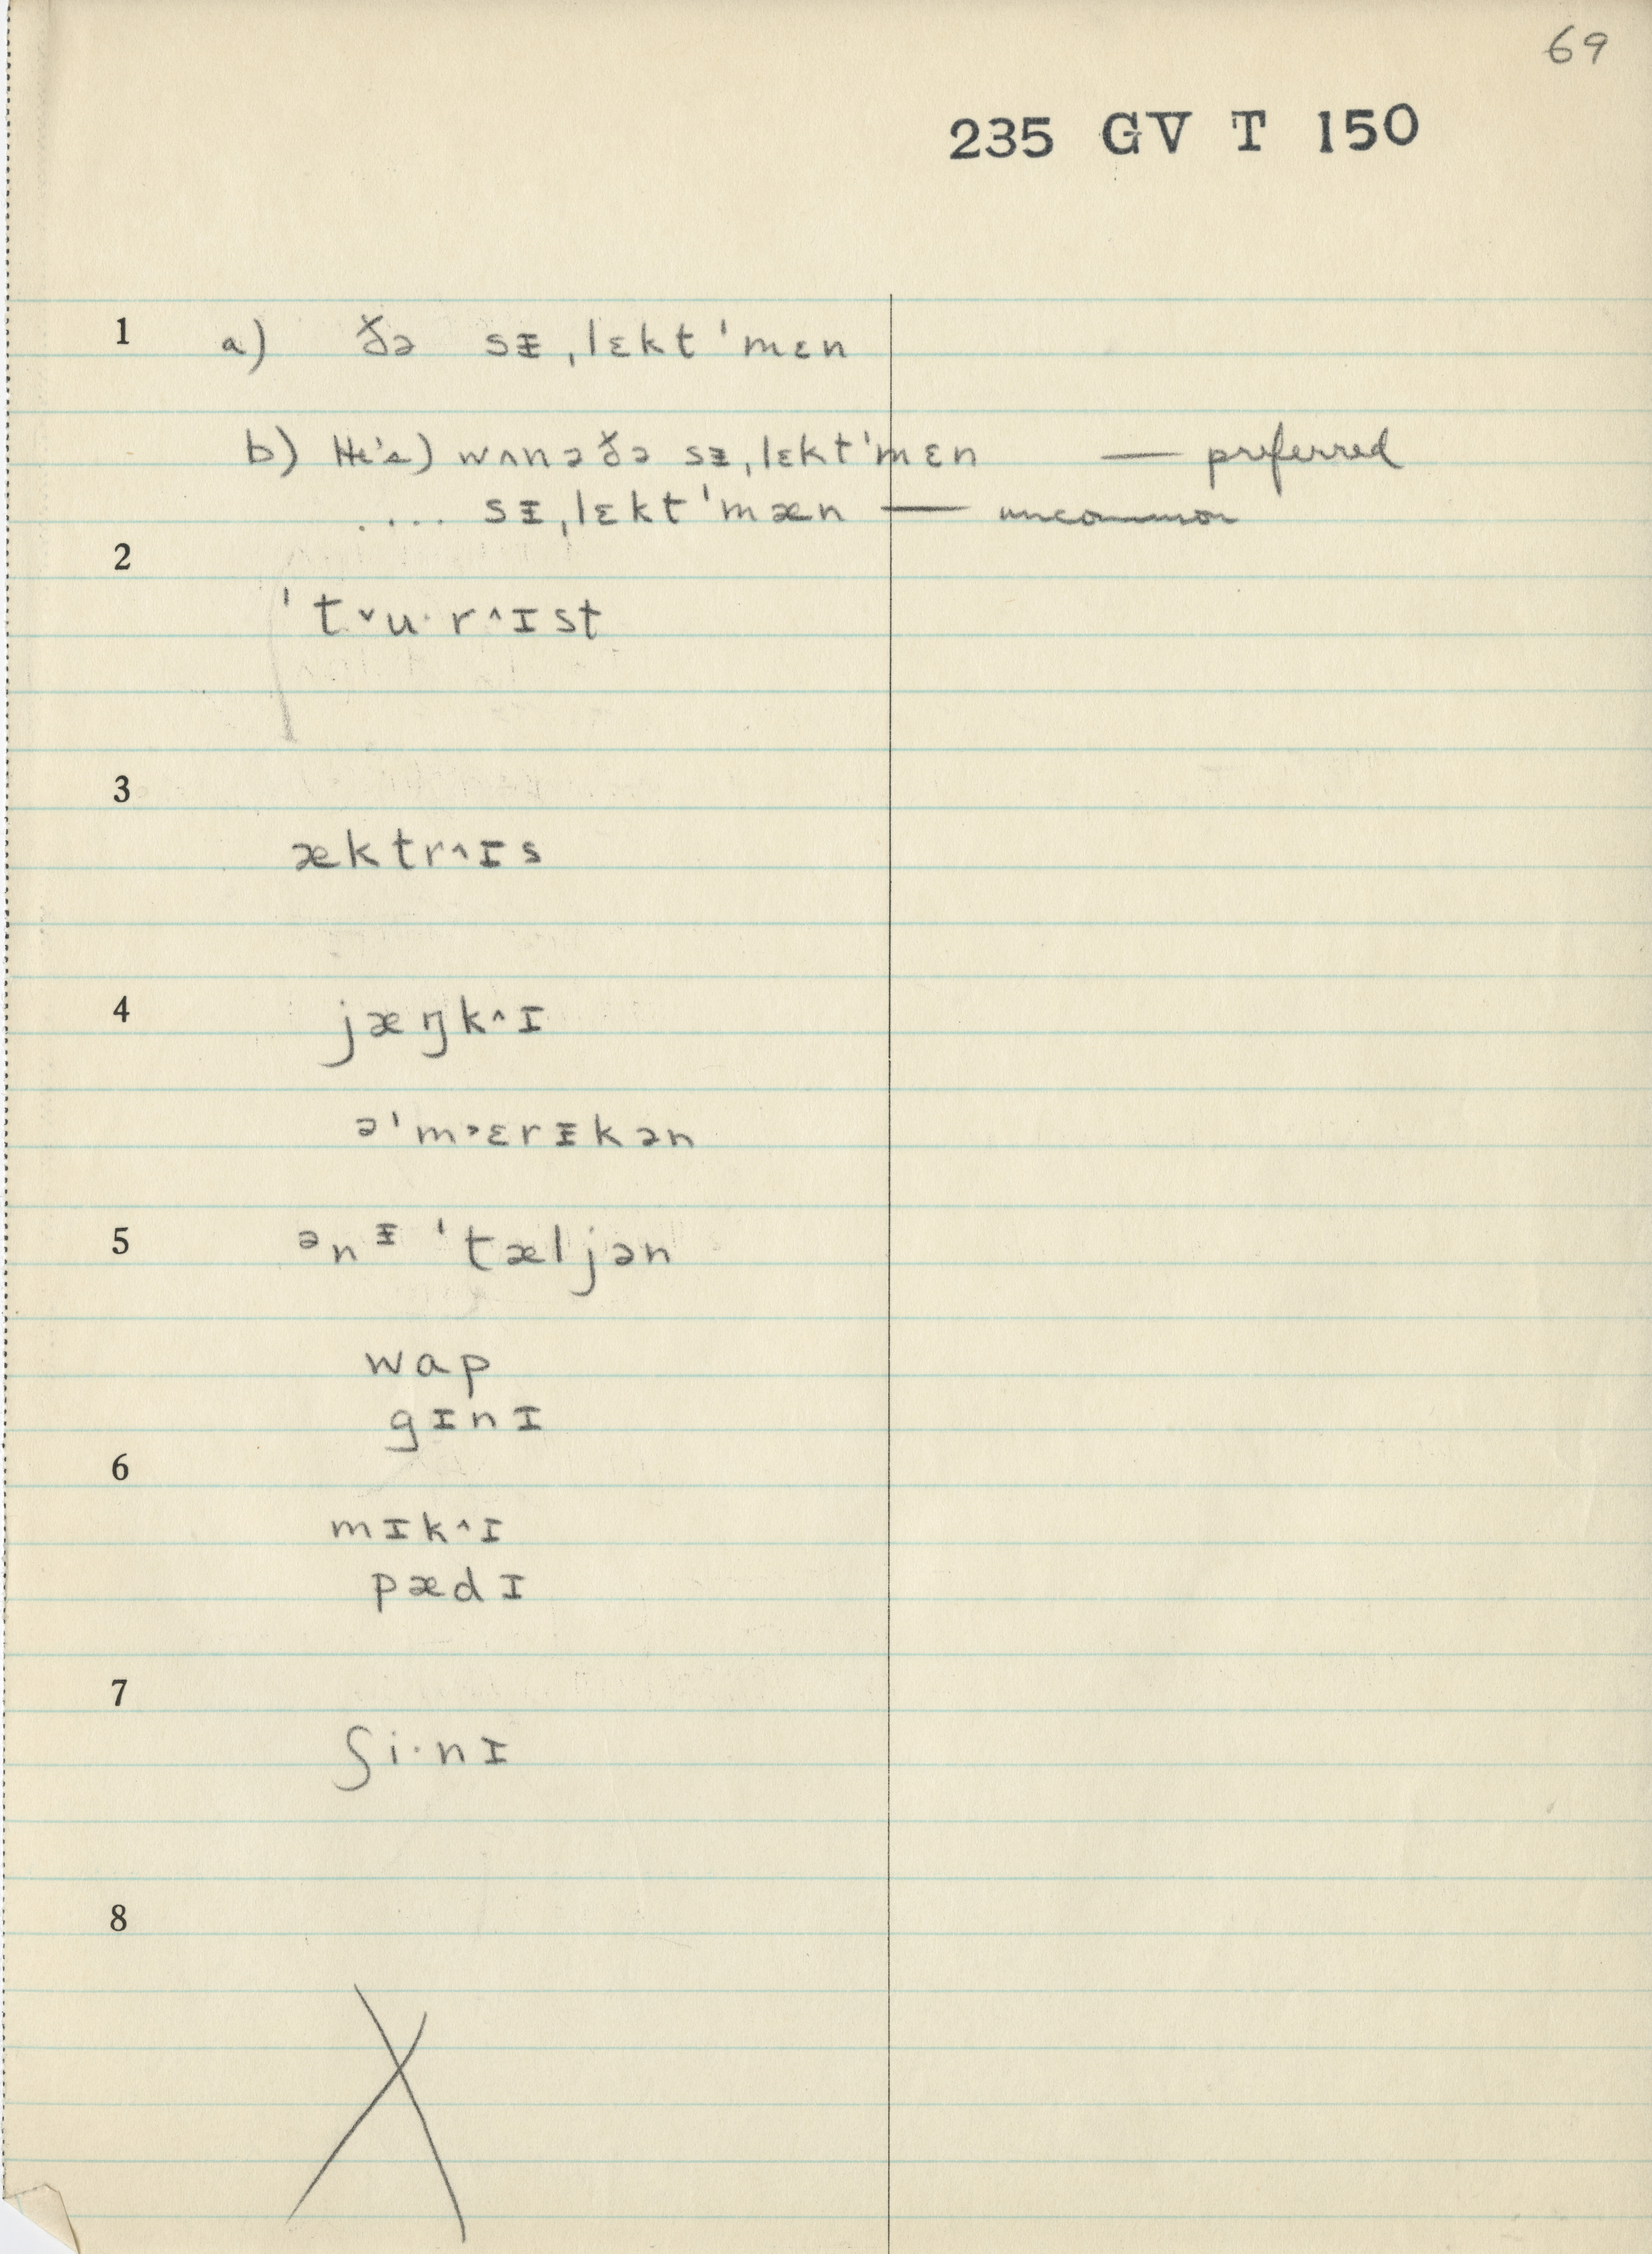 69
235 GV T 150
1 a) ðə sᵻˌlɛkt'mɛn
b) He's) wʌnəðə sᵻˌlɛkt'mɛn — preferred
.... sᵻˌlɛkt'mæn — uncommon
2
't˅u·r^ɪst
3
æktr^ɪs
4 jæŋk^ɪ
ə'm˃ɛrᵻkən
5 ənᵻ'tæljən
wap
gɪnɪ
6
mɪk^ɪ
pædɪ
7
ʃi·nɪ
8
X